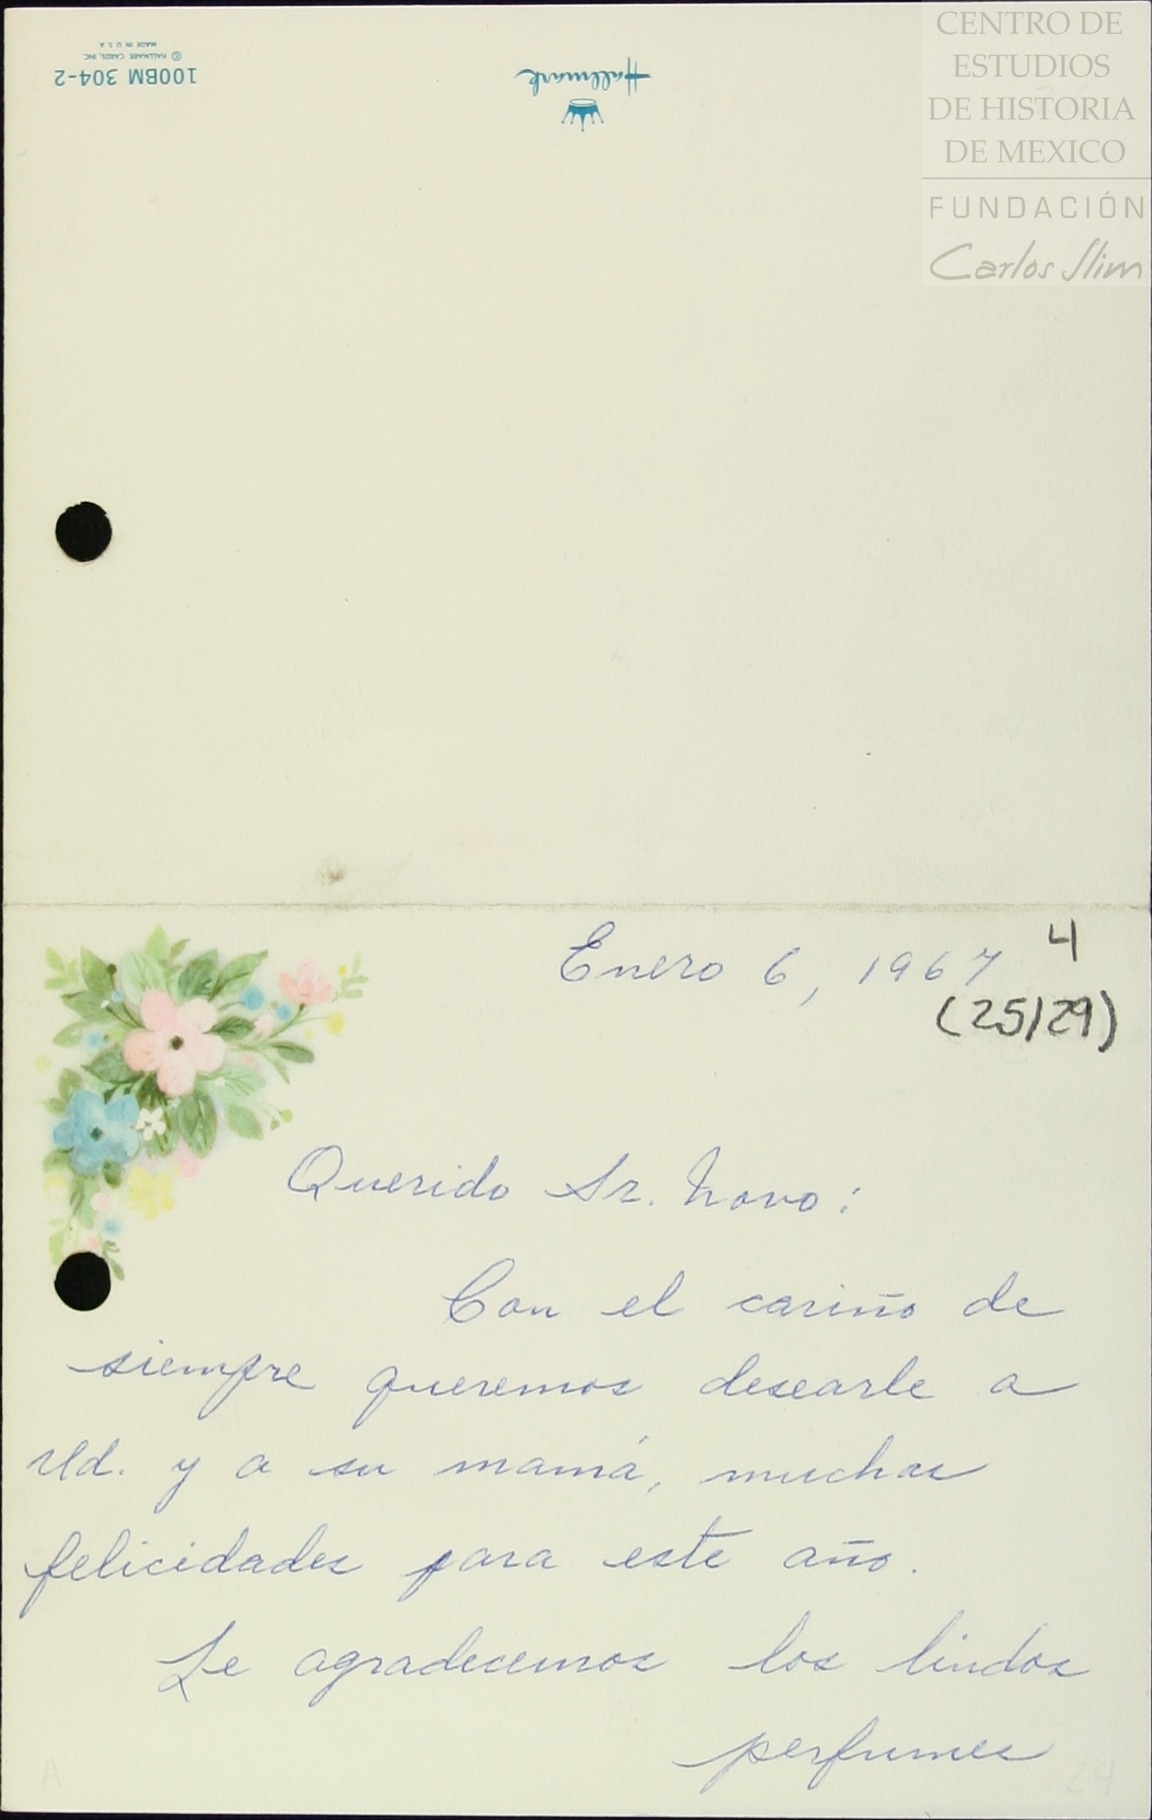 CENTRO DE
ESTUDIOS
DE HISTORIA
DE MEXICO
FUNDACIÓN
Carlos Slim
Hallmark
100BM 304-2
© HALLMARK CARDS, INC.
MADE IN U.S.A.
Enero 6, 1967
4
(25/29)
Querido Sr. Novo:
Con el cariño de
siempre queremos desearle a
Ud. y a su mamá, muchas
felicidades para este año.
Le agradecemos los lindos
perfumes
A
24